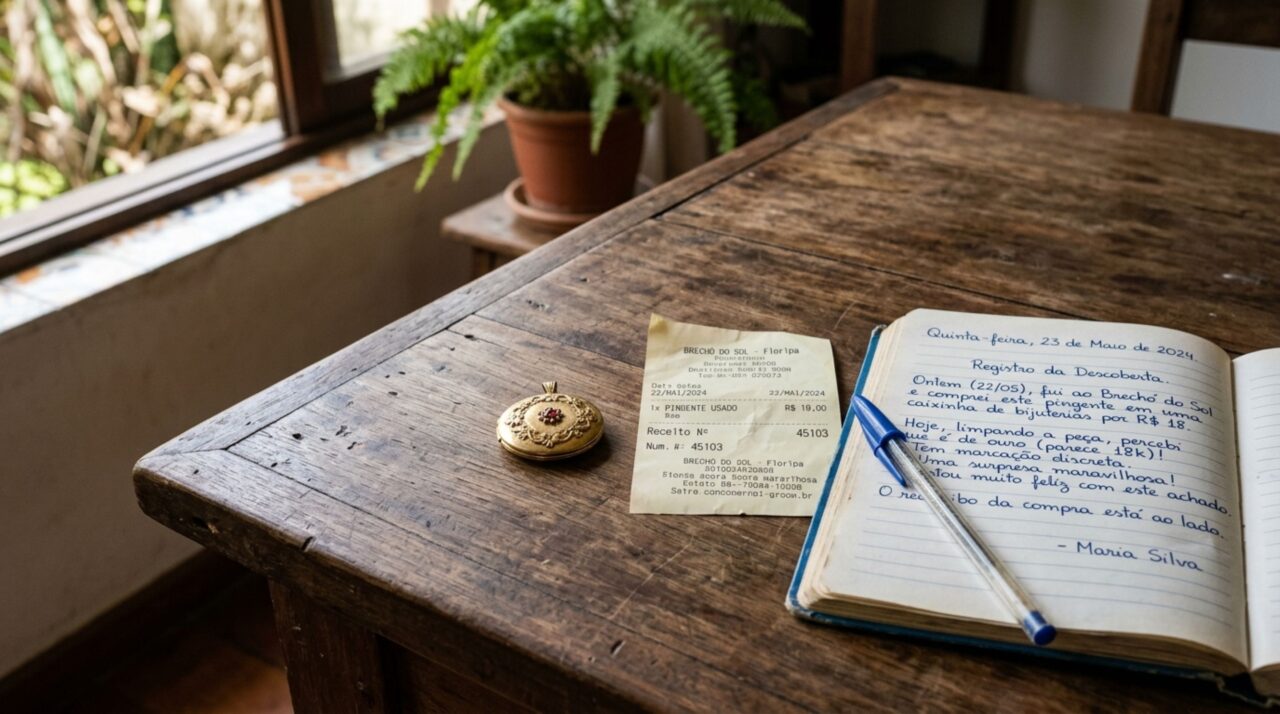 BRECHÓ DO SOL - Floripa
22/MAI/2024 22/MAI/2024
1x PINDENTE USADO R$ 19.00
Receito Nº 45103
Num. #: 45103
BRECHÓ DO DOL - Floripa
Quinta-feira, 23 de Maio de 2024.
Registro da Descoberta.
Ontem (22/05), fui ao Brechó do Sol
e comprei este pingente em uma
caixinha de bijuterias por R$ 18.
Hoje, limpando a peça, percebi
que é de ouro (parece 18k)!
Tem marcação discreta.
Uma surpresa maravilhosa!
muito feliz com este achado.
O da compra está ao lado.
- Maria Silva